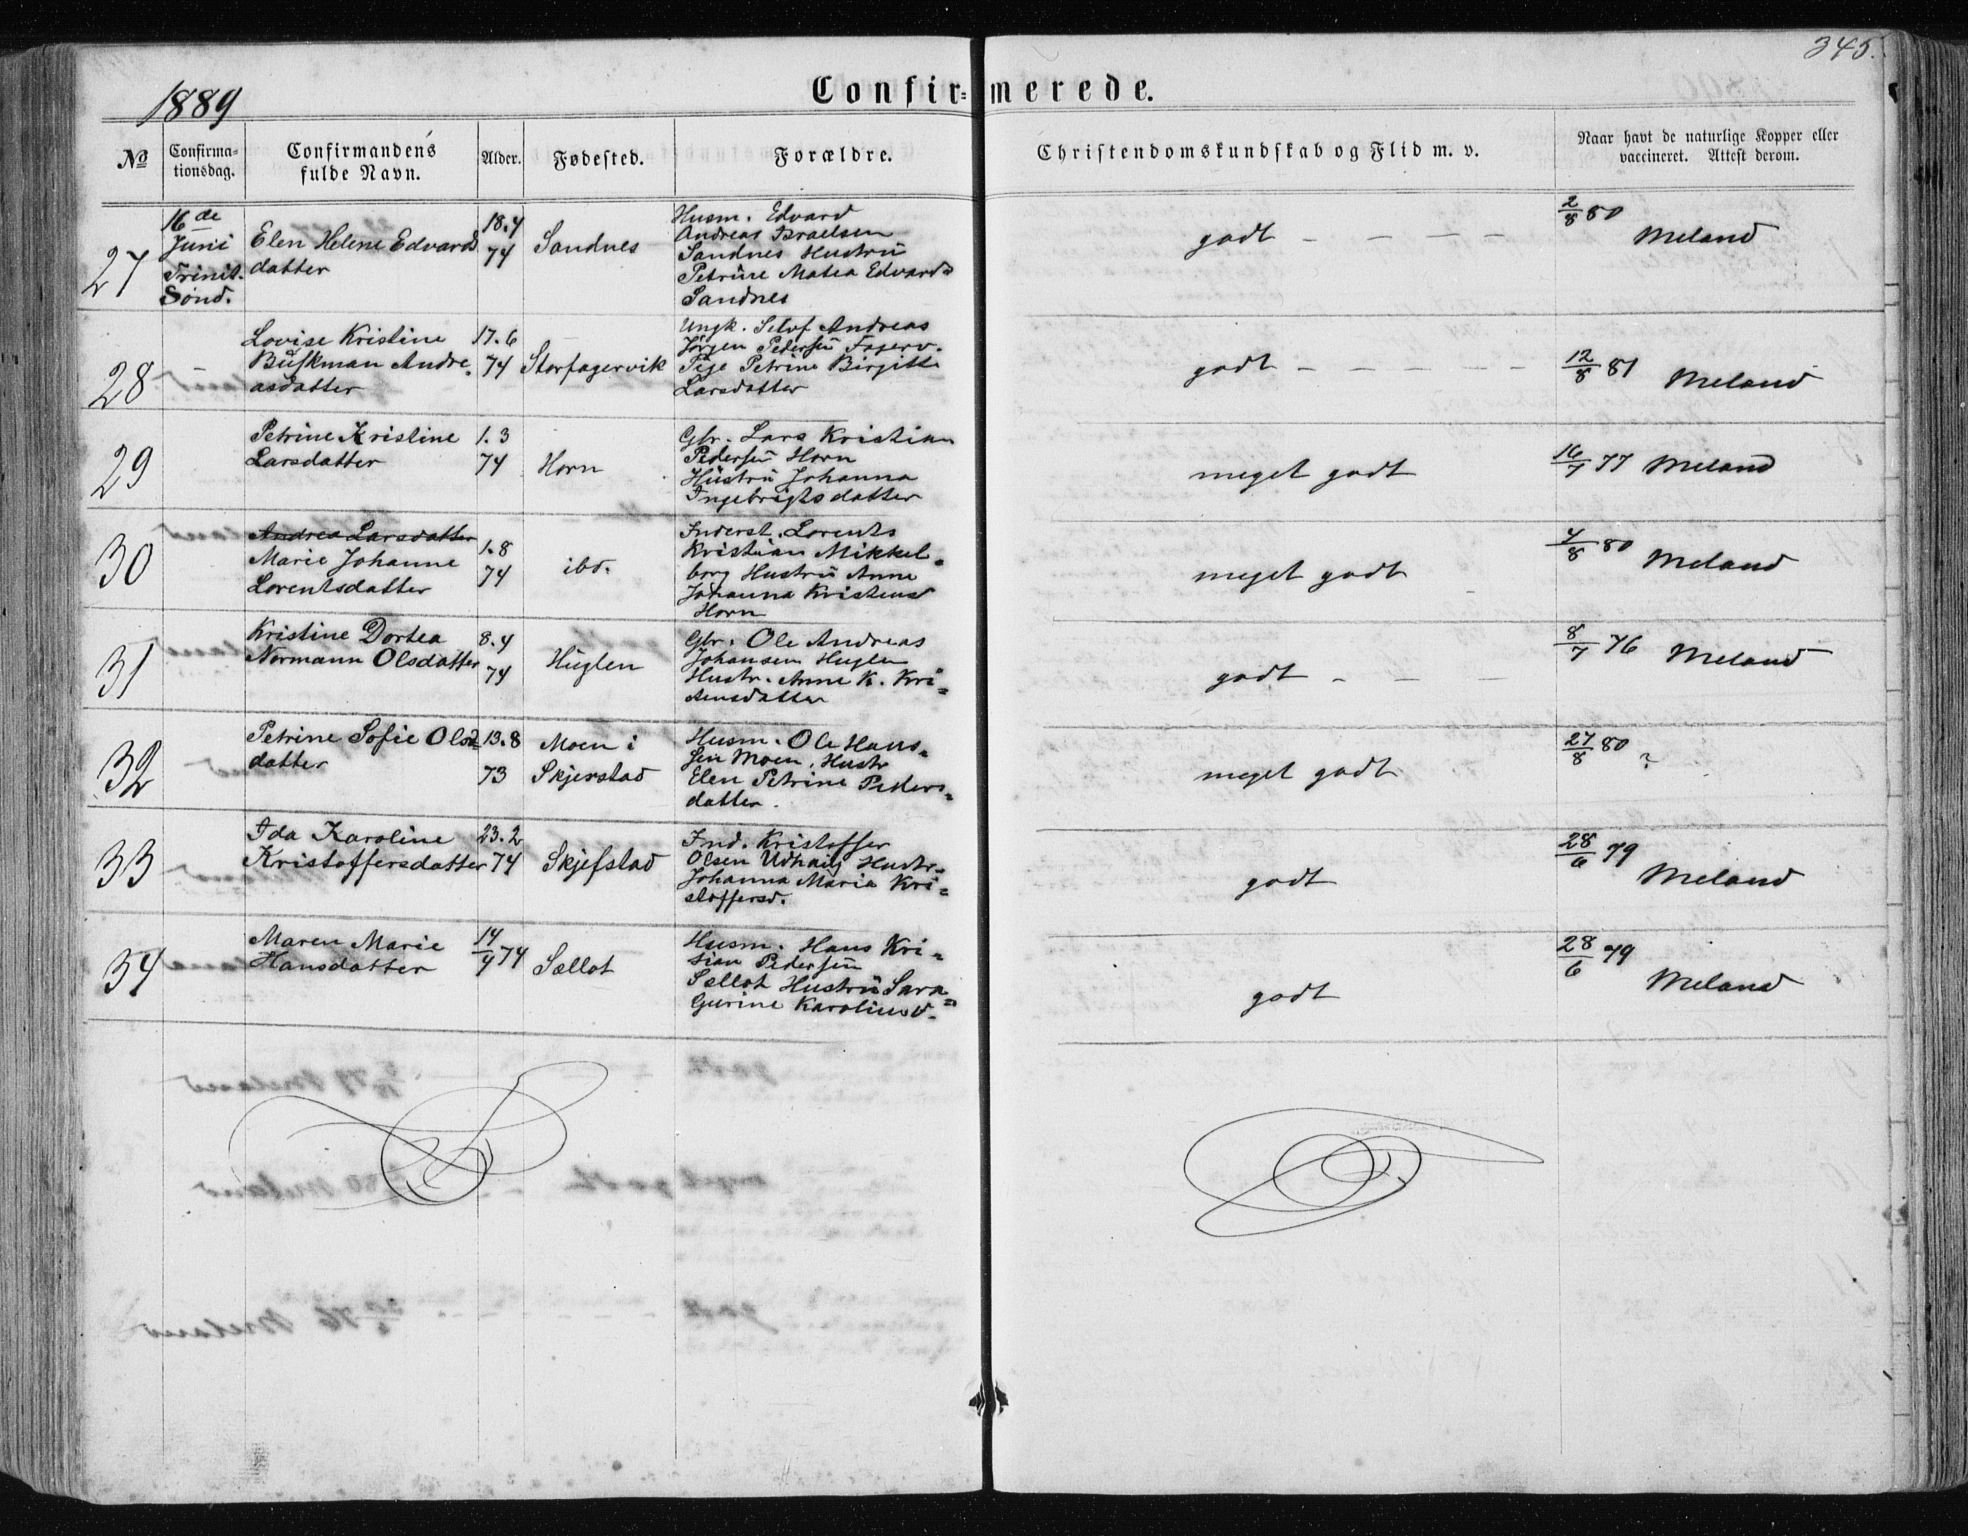 345.
1889
Confir= merede.
No
Confirma-
tionsdag.
Confirmandens
fulde Navn.
Alder.
Fødested.
Forældre.
Christendomskundskab og Flid m. v.
Naar havt de naturlige Kopper eller
vaccineret. Attest derom.
27
16 de
Juni
Trinit.
Sønd.
Elen Helene Edvards
datter
18.4
74
Sandnes
Husm. Edvard
Andreas Israelsen
Sandnes Hustru
Petrine Matea Edvardsd
Sandnes
godt - - - - -
2/8 80
Meland
28
-
Lovise Kristine
Buskman Andre-
asdatter
17.6
74
Storfagervik
Ungk. Selvf Andreas
Jörgen Pedersen Fagerv.
Pige Petrine Birgitte
Larsdatter
godt - - - - - -
12/8 81 Meland
29
Petrine Kristine
Larsdatter
1.3
74
Horn
Gbr. Lars Kristian
Pedersen Horn
Hustru Johanna
Ingebrigtsdatter
meget godt
16/7 77 Meland
30
Andrea Larsdatter
Marie Johanne
Lorentsdatter
1.8
74
ibd.
Inderst. Lorents
Kristian Mikkel-
borg Hustru Anne
Johanna Kristensd
Horn
meget godt
4/8 80 Meland
31
Kristine Dortea
Normann Olsdatter
8.4
74
Huglen
Gbr. Ole Andreas
Johansen Huglen
Hustr. Anne K. Kri=
stensdatter
godt - - -
8/7 76 Meland
32
Petrine Sofie Ols=
datter
13.8
73
Moen i
Skjerstad
Husm. Ole Hans=
sen Moen, Hustr
Elen Petrine Peders=
datter.
meget godt
27/8 80 ?
33
Ida Karoline
Kristoffersdatter
23.2
74
Skjefstad
Ind. Kristoffer
Olsen Udhaug Hustr.
Johanna Maria Kri=
stoffersd.
godt
28/6 79
Meland
34
Maren Marie
Hansdatter
14/4 74
Sællot
Husm. Hans Kri=
stian Pedersen
Sællot Hustru Sara=
Gurine Karolined.
godt
28/6 79
Meland